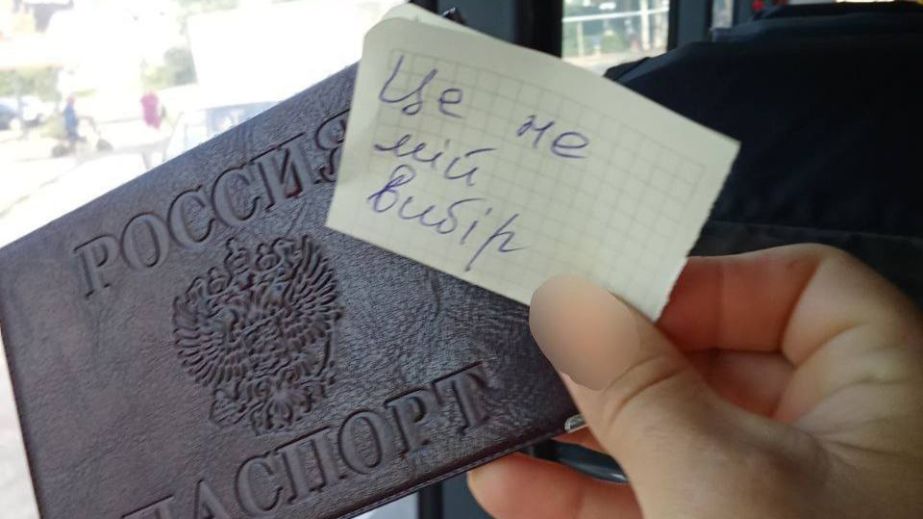 РОССИЯ
ПАСПОРТ
Це не
мій
вибір